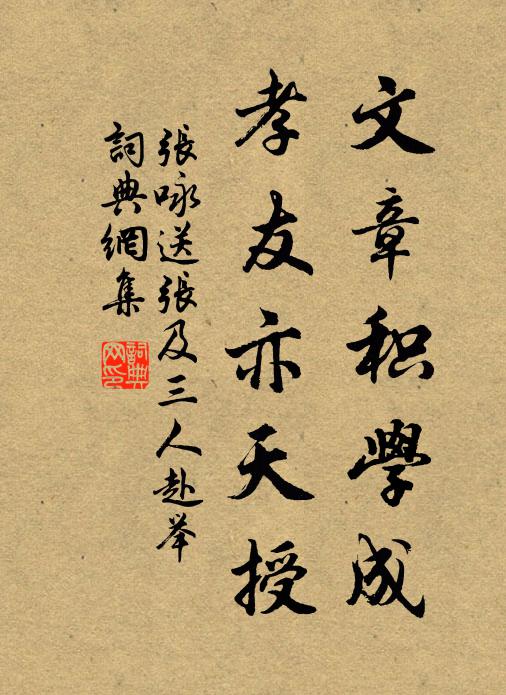 文章积學成
孝友亦天授
張咏送張及三人赴举
詞典網集
詞典
网印